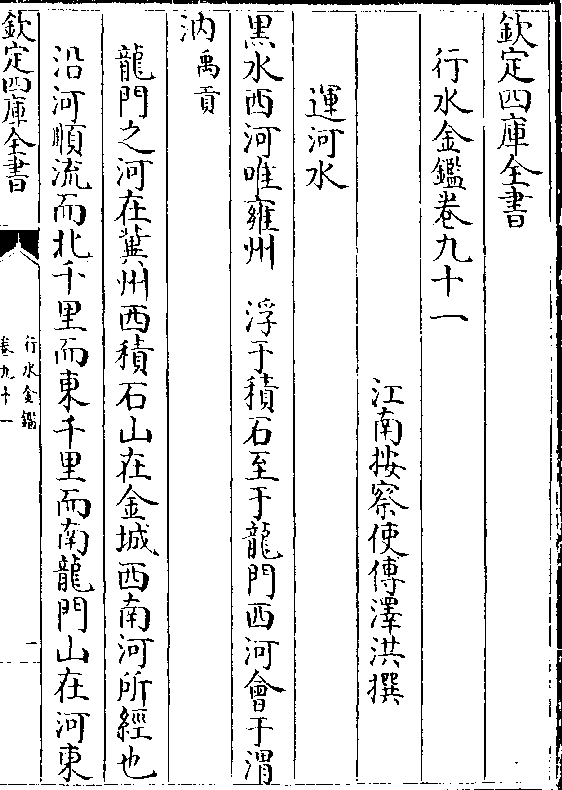 欽定四庫全書
行水金鑑卷九十一
江南按察使傅澤洪撰
運河水
黒水西河唯雍州　浮于積石至于龍門西河會于渭
汭禹貢
龍門之河在冀州西積石山在金城西南河所經也
沿河順流而北千里而東千里而南龍門山在河東
欽定四庫全書
行水金鑑
卷九十一
一